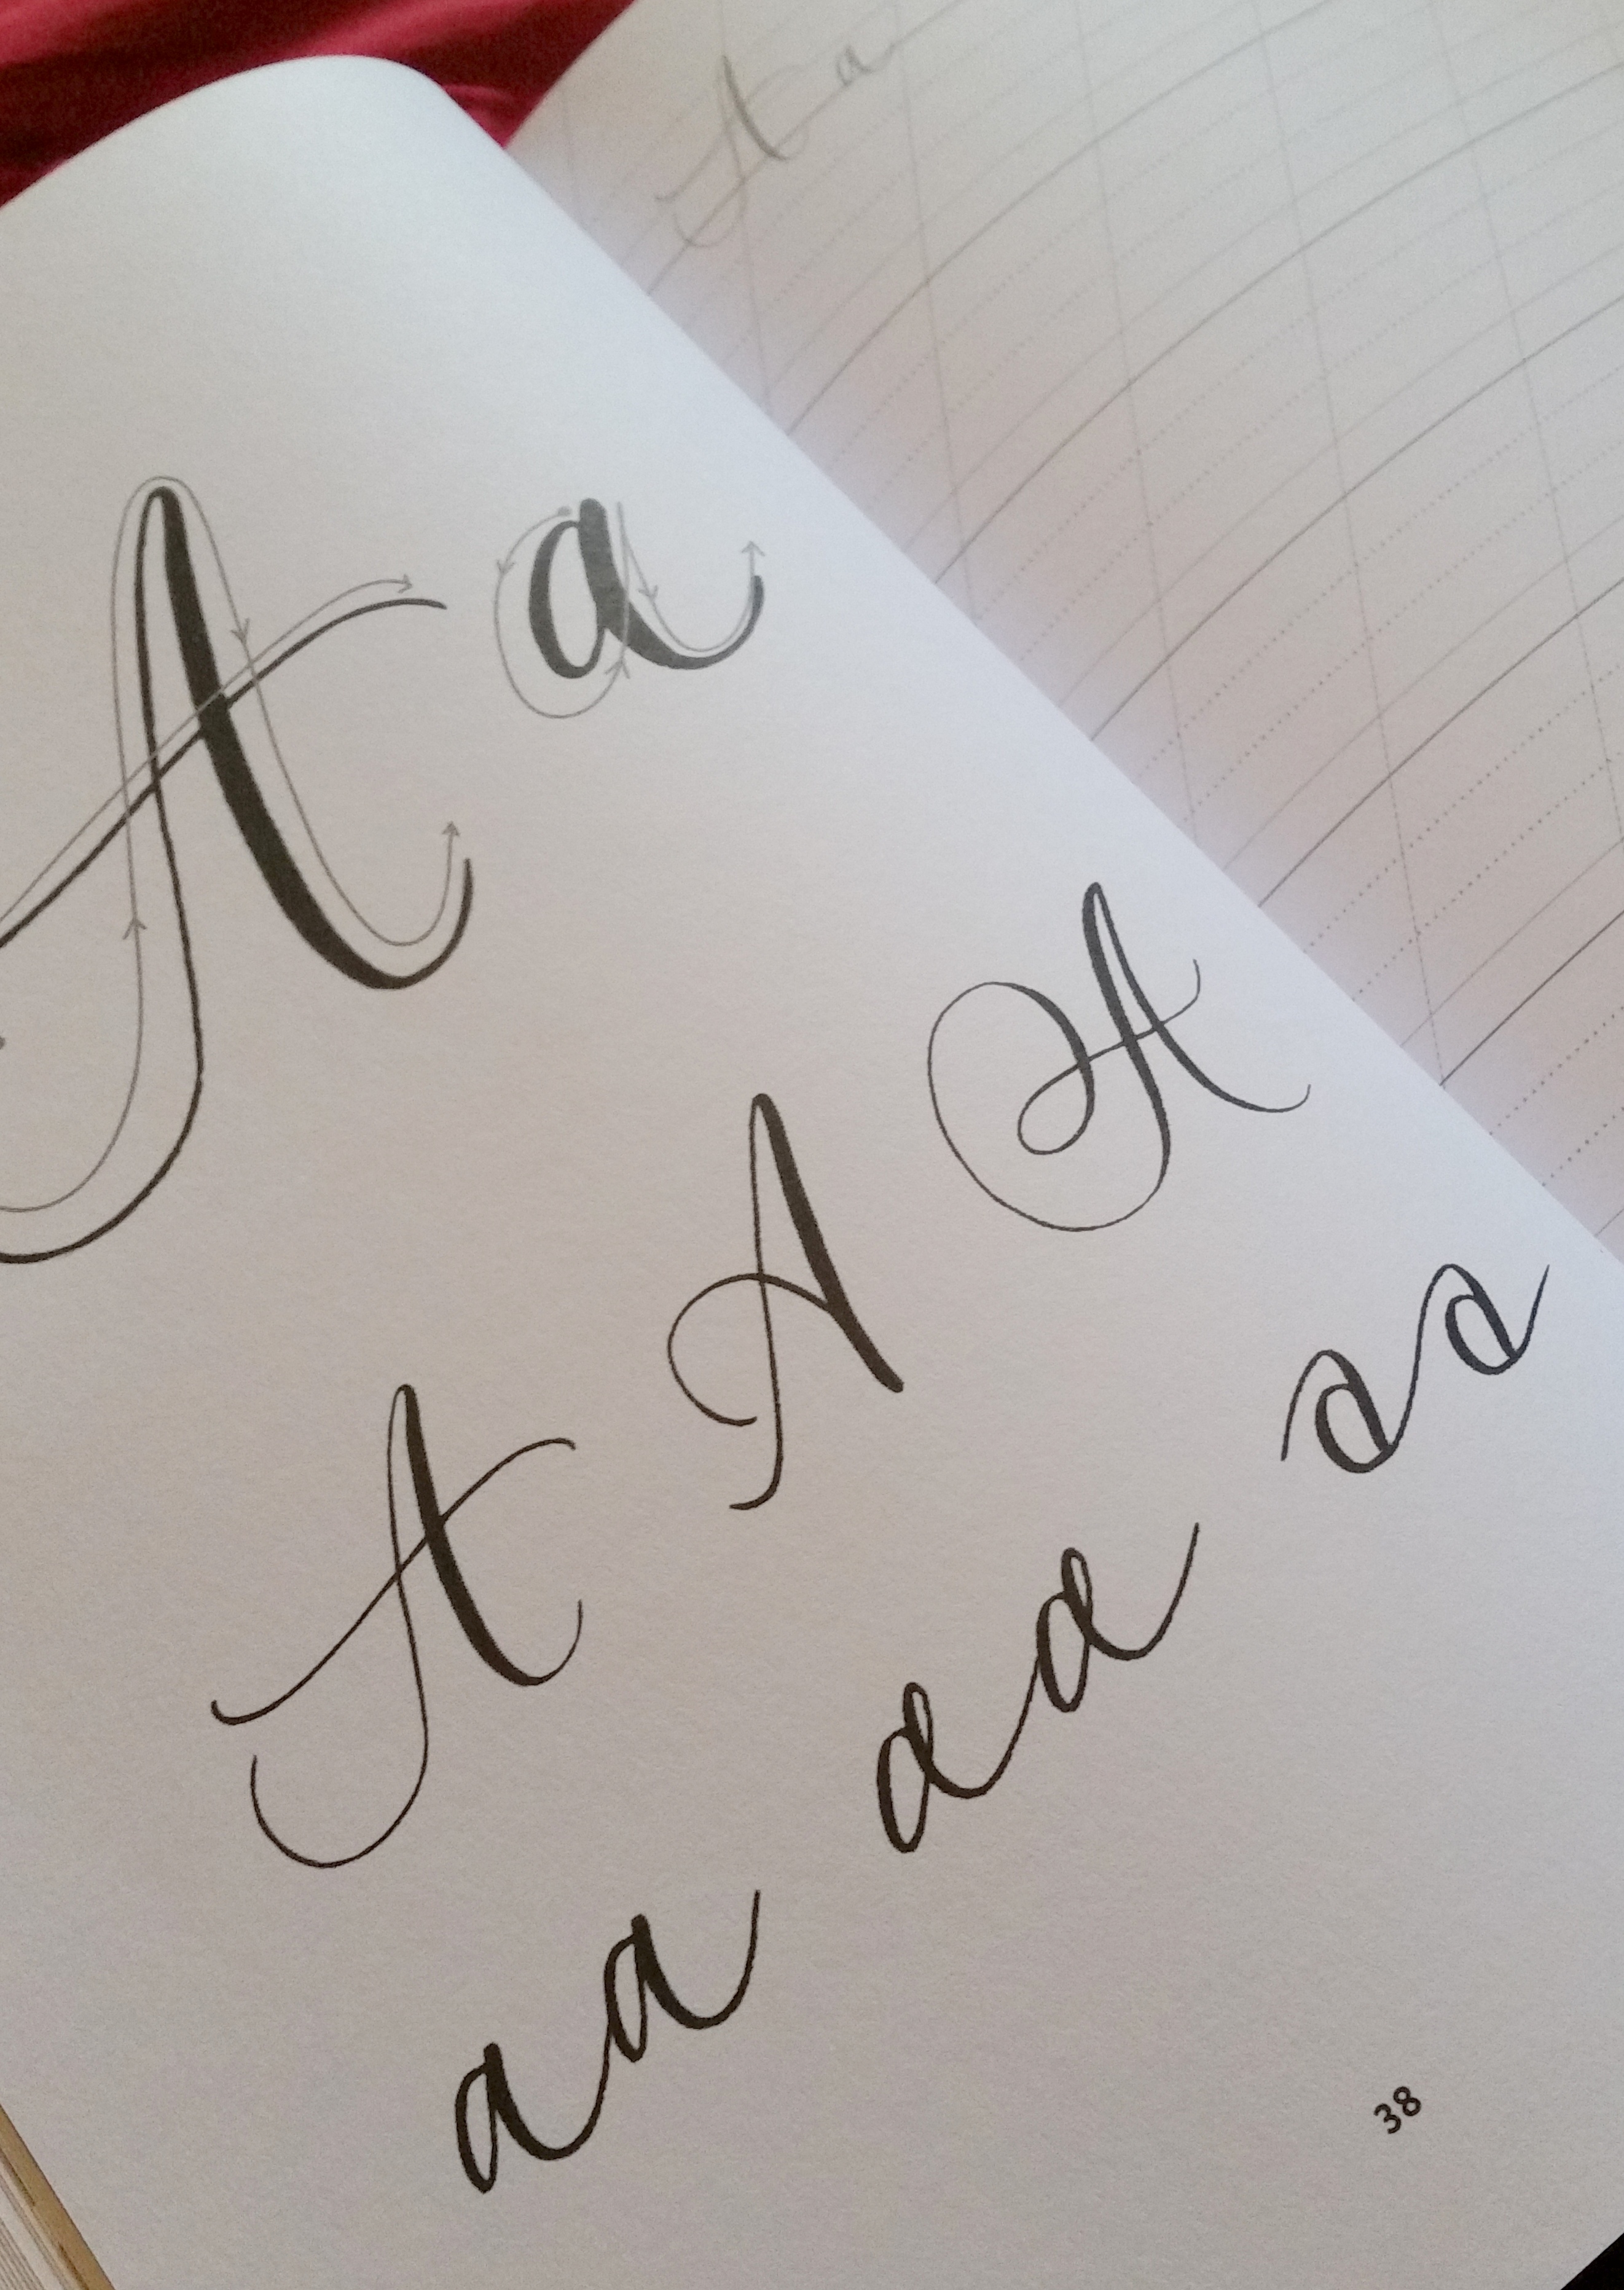 A a
A a
A A A
aa aa aa
38